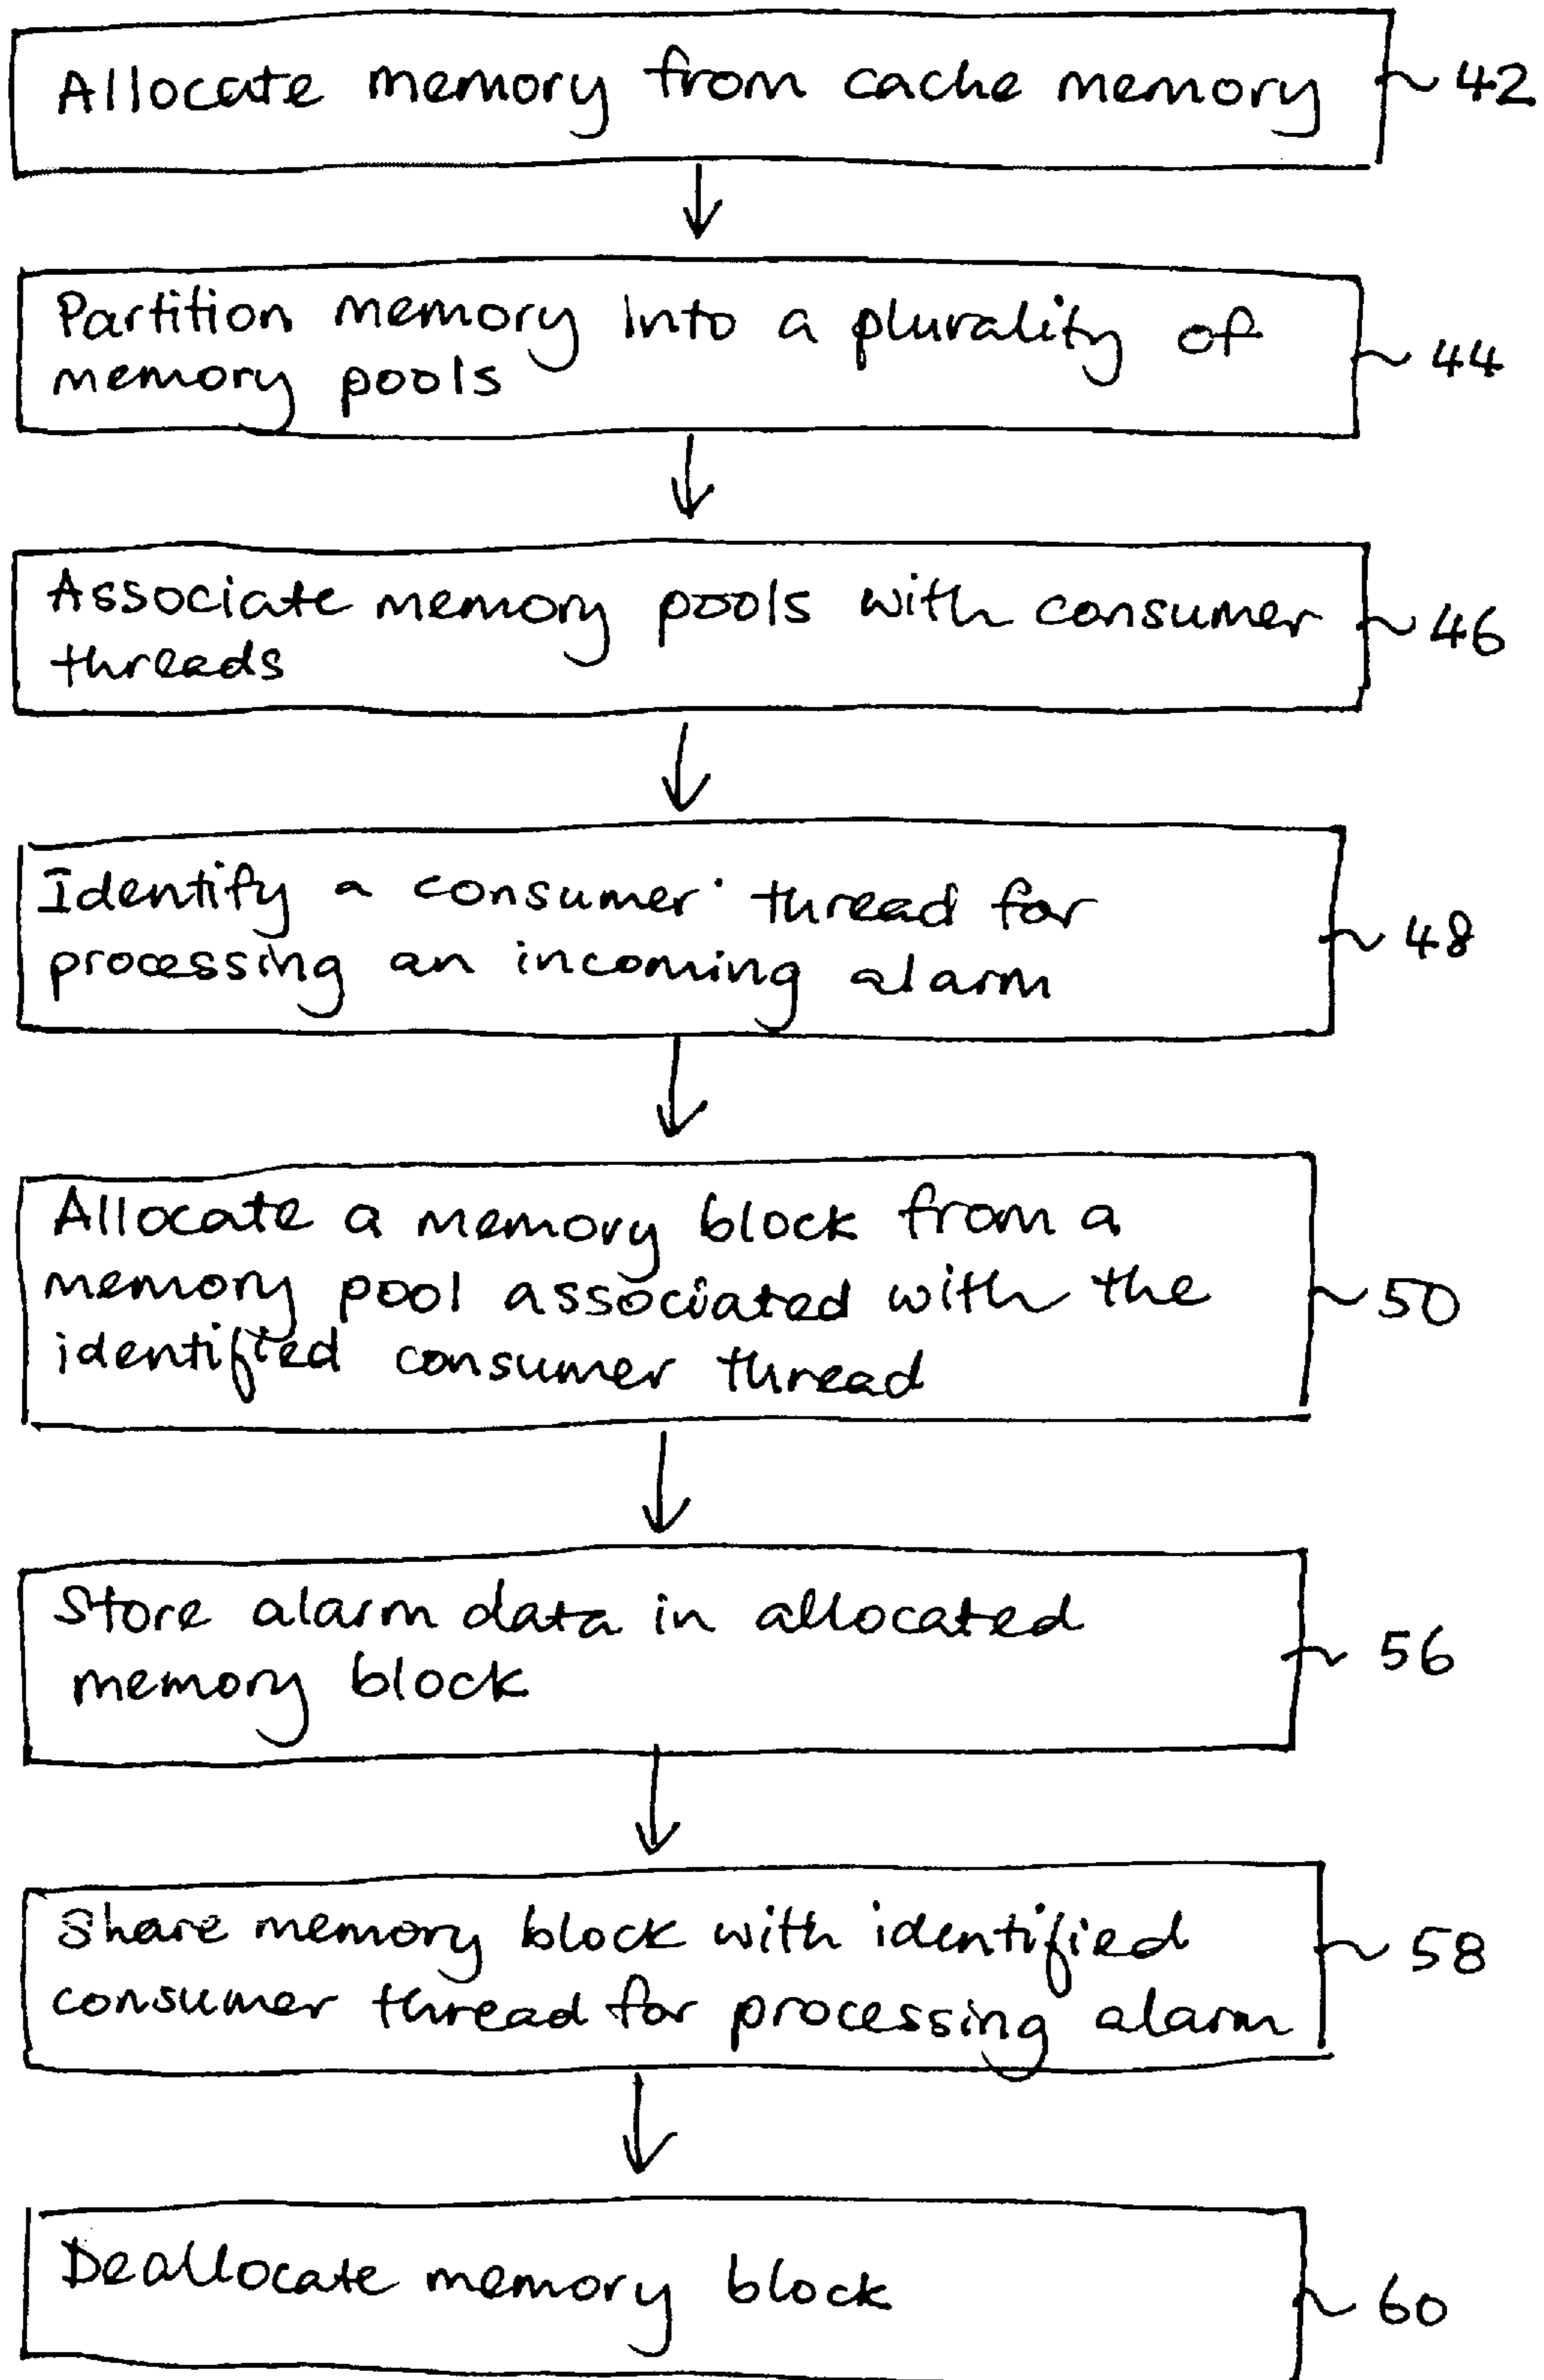 Allocate memory from cache memory ~ 42
Partition memory into a plurality of
memory pools ~ 44
Associate memory pools with consumer
threads ~ 46
Identify a consumer thread for
processing an incoming alarm ~ 48
Allocate a memory block from a
memory pool associated with the ~ 50
identified consumer thread
Store alarm data in allocated
memory block ~ 56
Share memory block with identified
consumer thread for processing alarm ~ 58
Deallocate memory block ~ 60